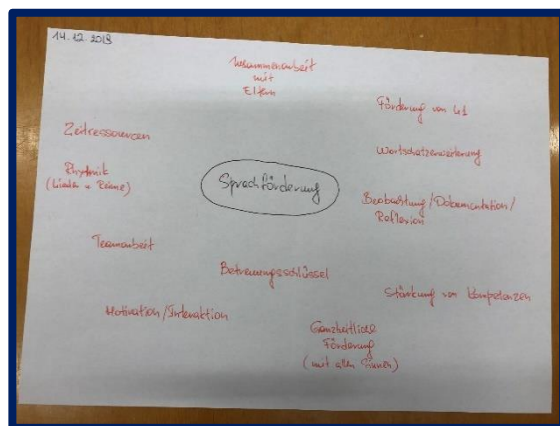 14.12.2018
Zusammenarbeit
mit
Eltern
Förderung von L1
Zeitressourcen
Wortschatzerweiterung
Rhythmik
(Lieder + Reime)
Sprachförderung
Beobachtung/Dokumentation/
Reflexion
Teamarbeit
Betreuungsschlüssel
Stärkung von Kompetenzen
Motivation/Interaktion
Ganzheitliche
Förderung
(mit allen Sinnen)